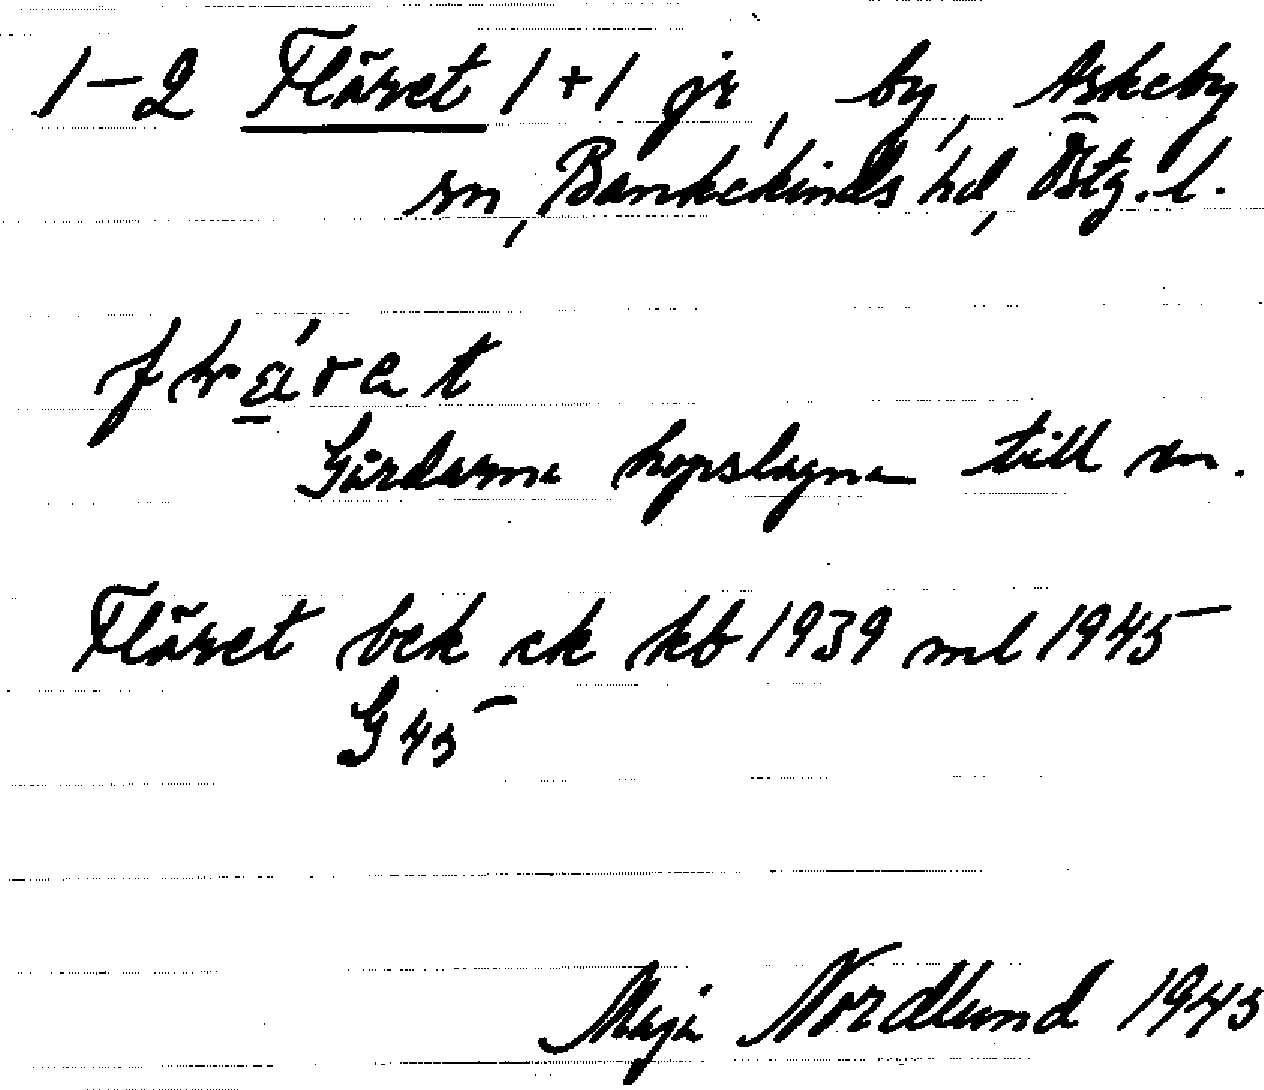 1-2 Fläret 1+1 gd, by, Askeby
sn, Bankekinds hd, Östg. l.
Gårdarna hopslagna till en.
Fläret bck ek kb 1939 ml 1945
G 45
Maja Nordlund 1945